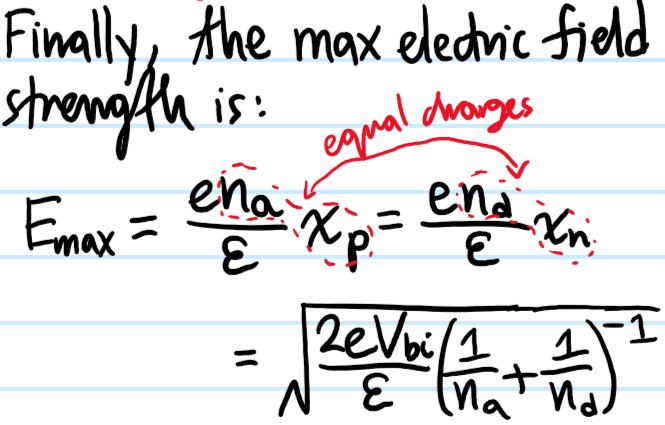 Finally, the max electric field
strength is:
equal charges
E_max = en_a/ε x_p = en_d/ε x_n
= √(2eV_bi/ε (1/n_a + 1/n_d)^-1)